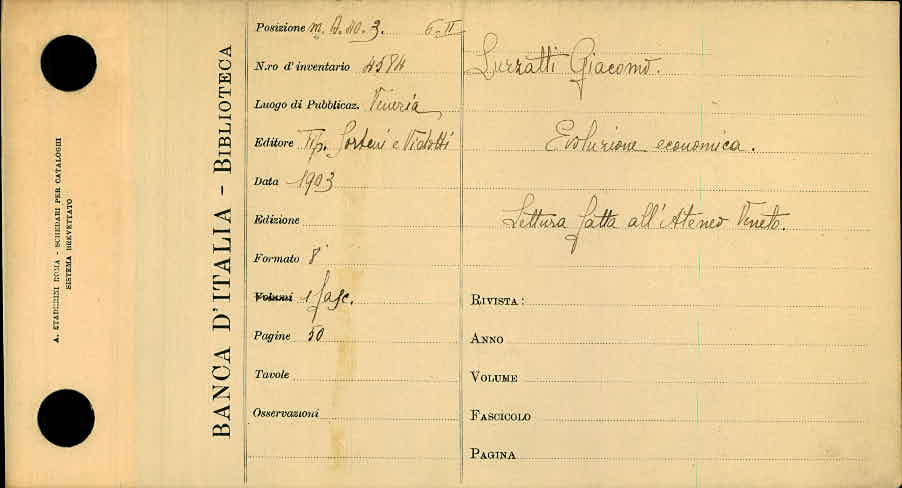 A. STADERINI ROMA - SCHEDARI PER CATALOGHI
SISTEMA BREVETTATO
BANCA D'ITALIA - BIBLIOTECA
Posizione m. A. 10. 3. 6-II
N.ro d'inventario 4584
Luogo di Pubblicaz. Venezia
Editore Tip. Sorteni e Vidotti
Data 1903
Edizione
Formato 8°
Volumi 1 fasc.
Pagine 50
Tavole
Osservazioni
Luzzatti Giacomo.
Evoluzione economica.
Lettura fatta all'Ateneo Veneto.
RIVISTA:
ANNO
VOLUME
FASCICOLO
PAGINA